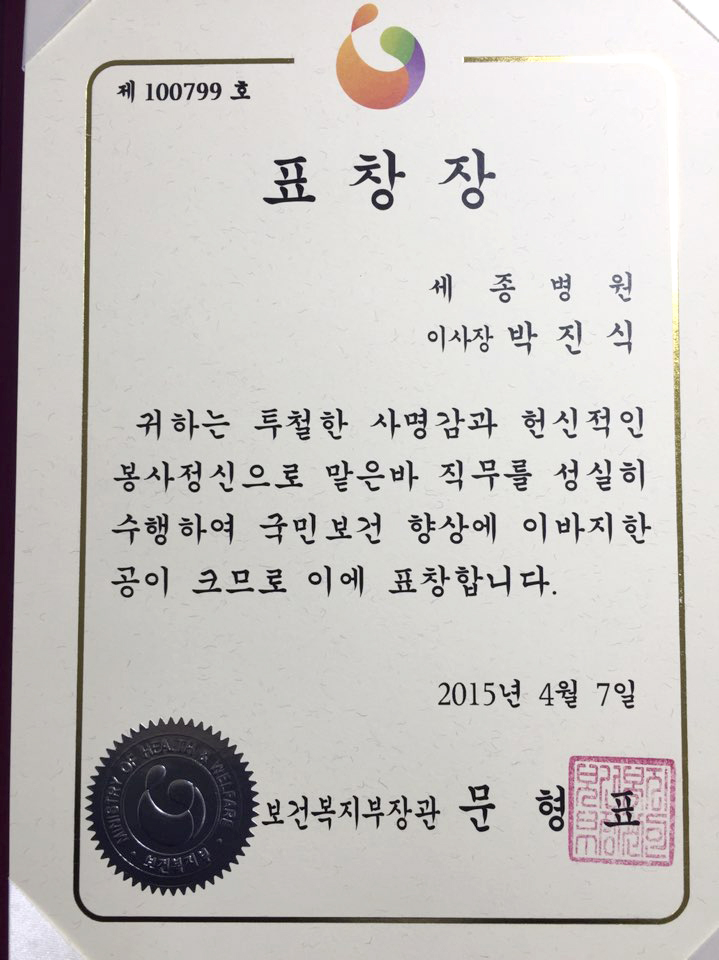 제 100799 호
표 창 장
세 종 병 원
이사장 박 진 식
귀하는 투철한 사명감과 헌신적인
봉사정신으로 맡은바 직무를 성실히
수행하여 국민보건 향상에 이바지한
공이 크므로 이에 표창합니다.
2015년 4월 7일
MINISTRY OF HEALTH & WELFARE
보건복지부
보건복지부장관 문 형 표